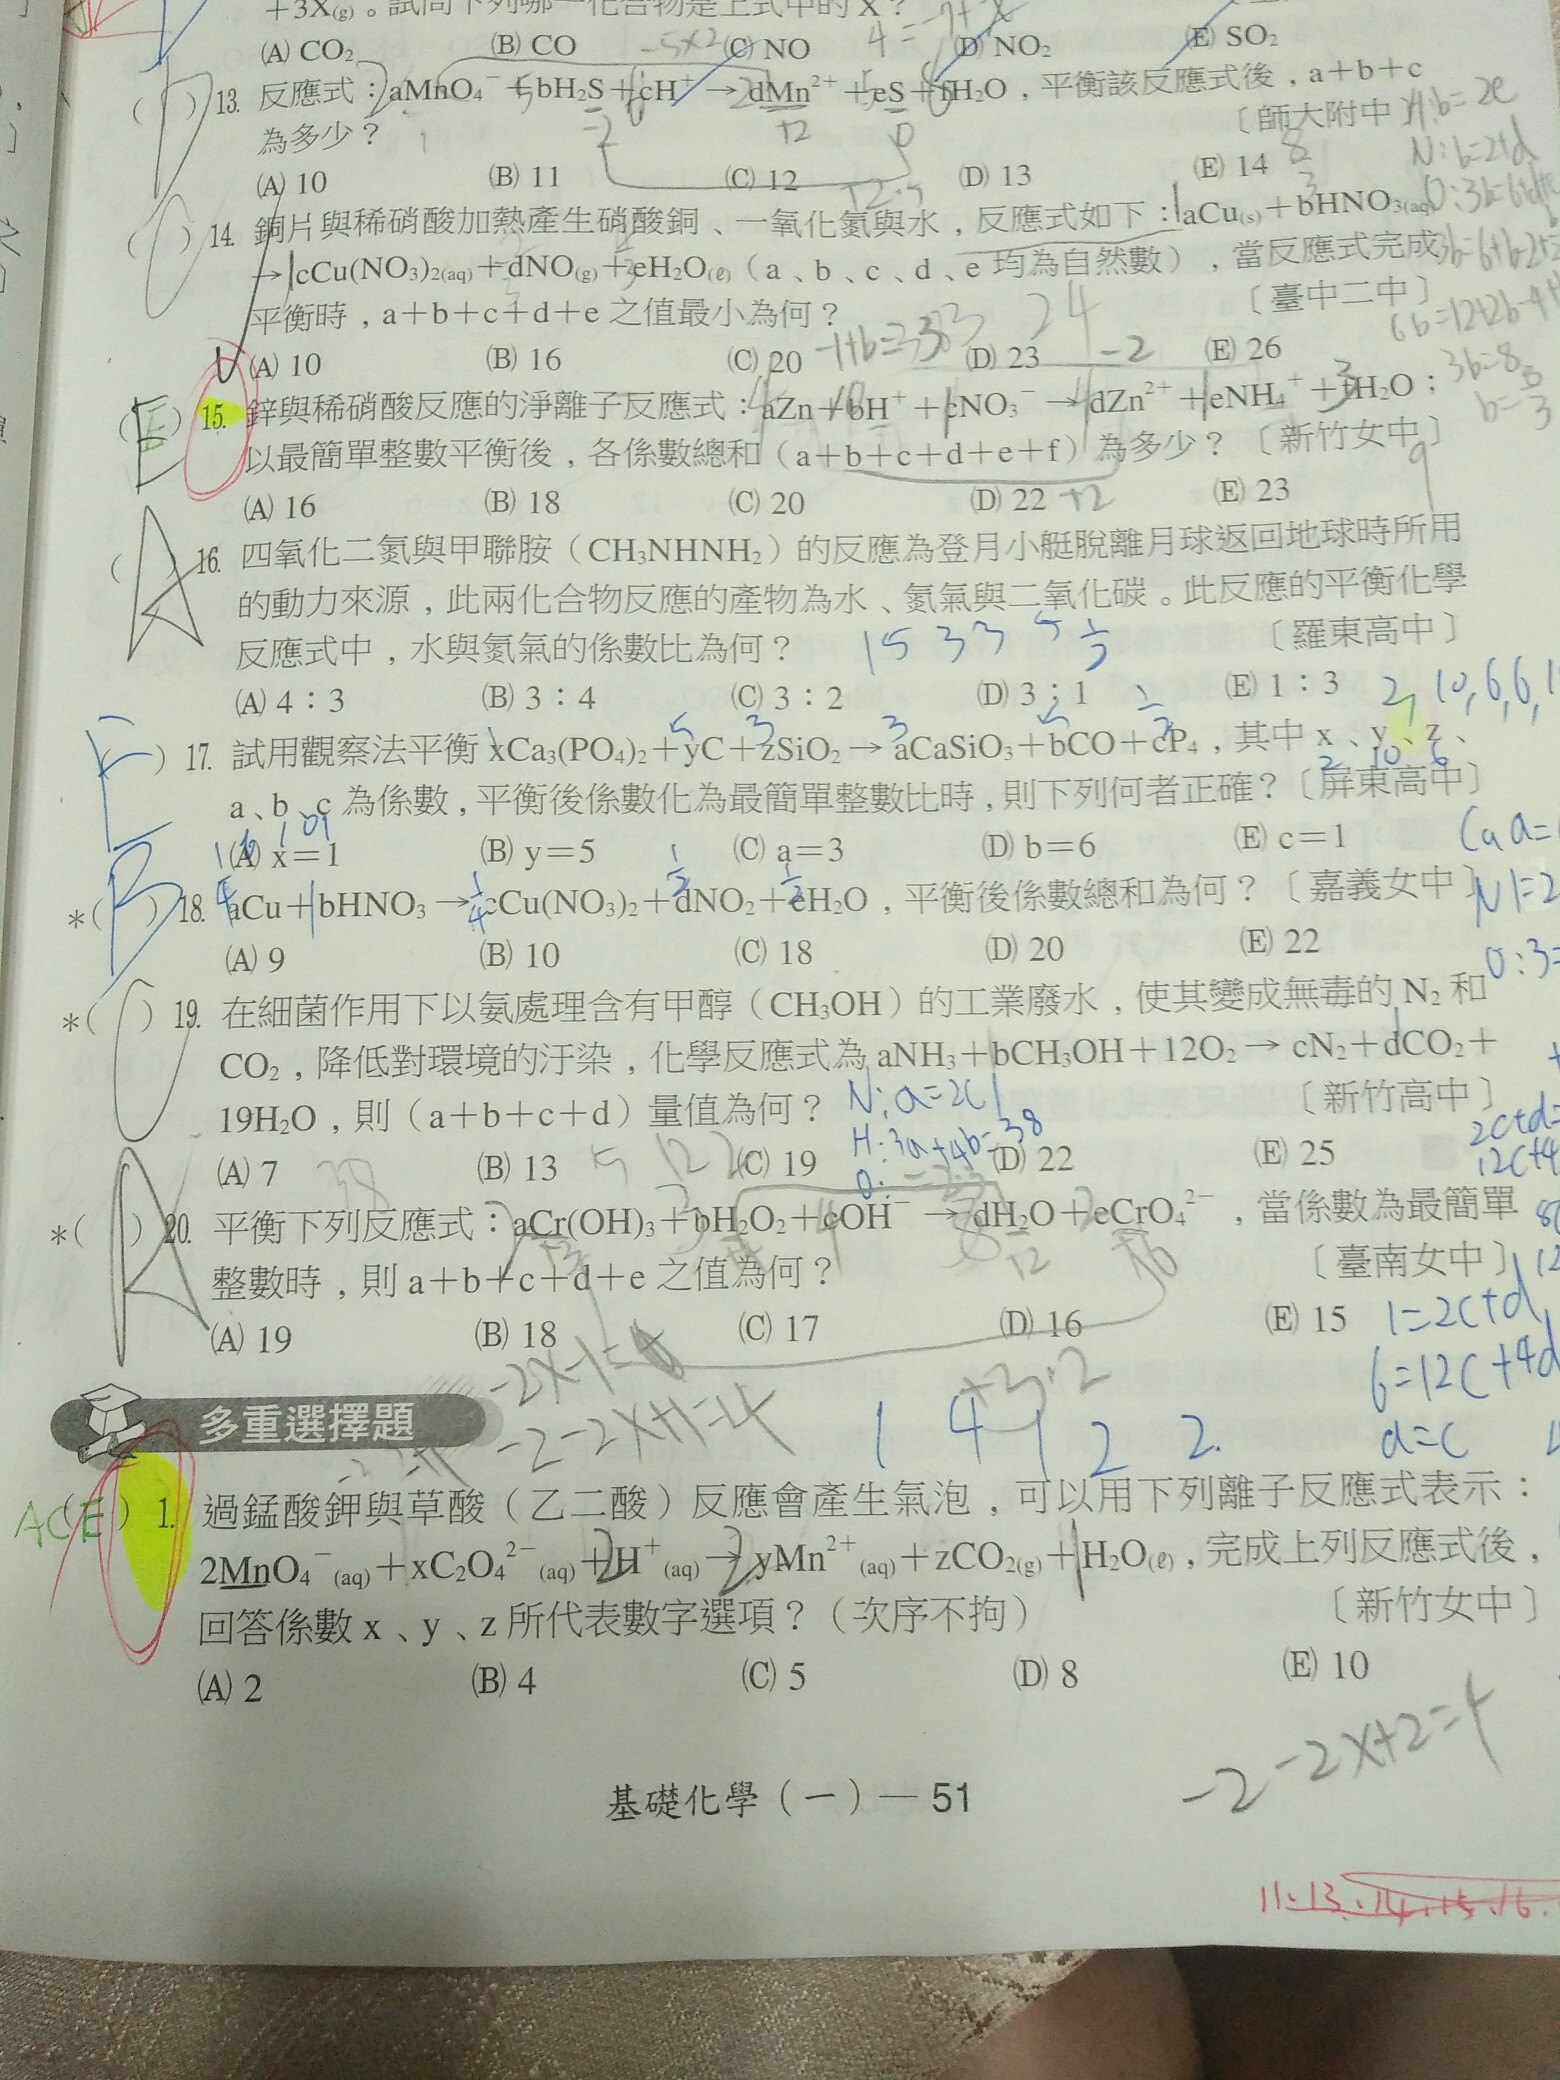 +3X(g)。試問下列哪一化合物是上式中的 X?
(A) CO₂ (B) CO (C) NO (D) NO₂ (E) SO₂
( D ) 13. 反應式:aMnO₄⁻+bH₂S+cH⁺→dMn²⁺+eS+fH₂O,平衡該反應式後,a+b+c
為多少? 〔師大附中〕
(A) 10 (B) 11 (C) 12 (D) 13 (E) 14
( C ) 14. 銅片與稀硝酸加熱產生硝酸銅、一氧化氮與水,反應式如下:aCu(s)+bHNO₃(aq)
→cCu(NO₃)₂(aq)+dNO(g)+eH₂O(ℓ)(a、b、c、d、e 均為自然數),當反應式完成
平衡時,a+b+c+d+e 之值最小為何? 〔臺中二中〕
(A) 10 (B) 16 (C) 20 (D) 23 (E) 26
( E ) 15. 鋅與稀硝酸反應的淨離子反應式:aZn+bH⁺+cNO₃⁻→dZn²⁺+eNH₄⁺+fH₂O;
以最簡單整數平衡後,各係數總和(a+b+c+d+e+f)為多少?〔新竹女中〕
(A) 16 (B) 18 (C) 20 (D) 22 (E) 23
( A ) 16. 四氧化二氮與甲聯胺(CH₃NHNH₂)的反應為登月小艇脫離月球返回地球時所用
的動力來源,此兩化合物反應的產物為水、氮氣與二氧化碳。此反應的平衡化學
反應式中,水與氮氣的係數比為何? 〔羅東高中〕
(A) 4:3 (B) 3:4 (C) 3:2 (D) 3:1 (E) 1:3
( E ) 17. 試用觀察法平衡 xCa₃(PO₄)₂+yC+zSiO₂→aCaSiO₃+bCO+cP₄,其中 x、y、z、
a、b、c 為係數,平衡後係數化為最簡單整數比時,則下列何者正確?〔屏東高中〕
(A) x=1 (B) y=5 (C) a=3 (D) b=6 (E) c=1
*( B ) 18. aCu+bHNO₃→cCu(NO₃)₂+dNO₂+eH₂O,平衡後係數總和為何?〔嘉義女中〕
(A) 9 (B) 10 (C) 18 (D) 20 (E) 22
*( C ) 19. 在細菌作用下以氨處理含有甲醇(CH₃OH)的工業廢水,使其變成無毒的 N₂ 和
CO₂,降低對環境的汙染,化學反應式為 aNH₃+bCH₃OH+12O₂→cN₂+dCO₂+
19H₂O,則(a+b+c+d)量值為何? 〔新竹高中〕
N: a=2c
H: 3a+4b=38
(A) 7 (B) 13 (C) 19 (D) 22 (E) 25
*( A ) 20. 平衡下列反應式:aCr(OH)₃+bH₂O₂+cOH⁻→dH₂O+eCrO₄²⁻,當係數為最簡單
整數時,則 a+b+c+d+e 之值為何? 〔臺南女中〕
(A) 19 (B) 18 (C) 17 (D) 16 (E) 15
1=2c+d
6=12c+4d
-2-2x+1=-4
1 4 1 2 2.
多重選擇題
( ACE ) 1. 過錳酸鉀與草酸(乙二酸)反應會產生氣泡,可以用下列離子反應式表示:
2MnO₄⁻(aq)+xC₂O₄²⁻(aq)+H⁺(aq)→yMn²⁺(aq)+zCO₂(g)+H₂O(ℓ),完成上列反應式後,
回答係數 x、y、z 所代表數字選項?(次序不拘) 〔新竹女中〕
(A) 2 (B) 4 (C) 5 (D) 8 (E) 10
-2-2x+2=4
基礎化學(一)— 51
11.13.14.15.16.